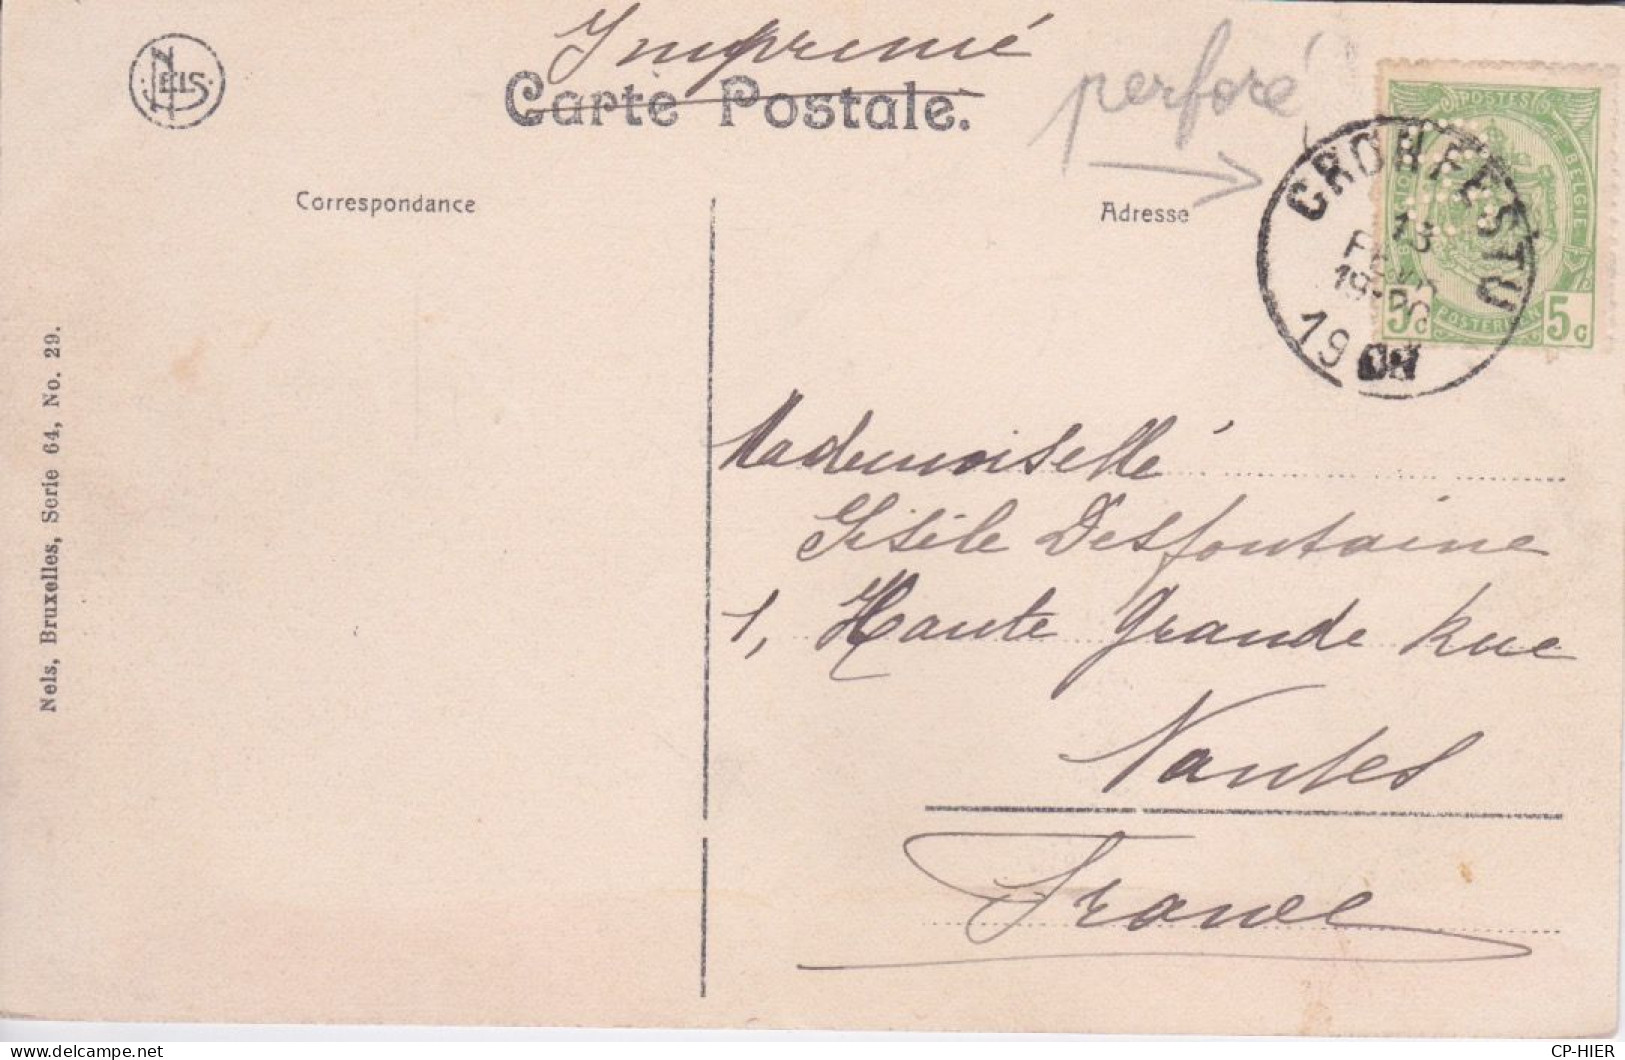 Imprimé
Carte Postale.
NELS
perforé
Correspondance
Adresse
POSTES
BELGIQUE
POSTERIJEN
5c 5c
CRONFESTU
13
19
Nels, Bruxelles, Serie 64, No. 29.
Mademoiselle
Gisèle Desfontaine
1, Haute Grande Rue
Nantes
France
CP-HIER
delcampe.net